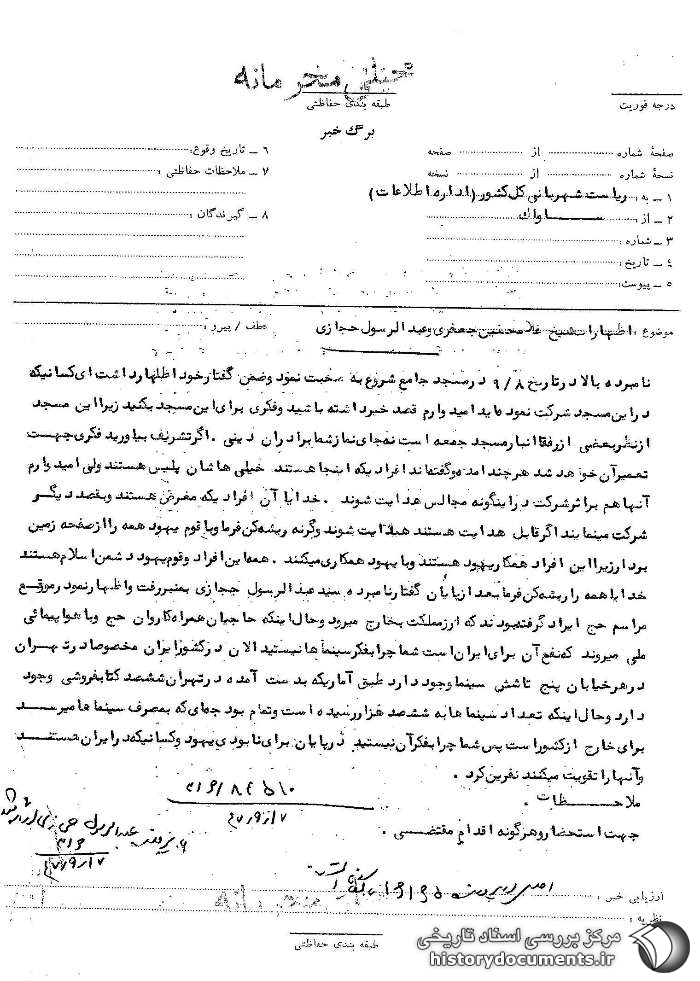 خیلی محرمانه
طبقه بندی حفاظتی
درجه فوریت
برگ خبر
صفحهٔ شماره از صفحه
نسخهٔ شماره از نسخه
۱ – به : ریاست شهربانی کل کشور (اداره اطلاعات)
۲ – از : ساواک
۳ – شماره :
۴ – تاریخ :
۵ – پیوست :
۶ – تاریخ وقوع :
۷ – ملاحظات حفاظتی :
۸ – گیرندگان :
موضوع : اظهارات شیخ غلامحسین جعفری و عبدالرسول حجازی عطف / پیرو :
نامبرده بالا در تاریخ ۹/۸ در مسجد جامع شروع به صحبت نمود و ضمن گفتار خود اظهار داشت ای کسانیکه
در این مسجد شرکت نموده اید امیدوارم قصد خیر داشته باشید و فکری برای این مسجد بکنید زیرا این مسجد
از نظر بعضی از رفقا انبار مسجد جمعه است نه جای نماز شما برادران دینی . اگر تشریف بیاورید فکری جهت
تعمیر آن خواهد شد هرچند آمده و گفته اند افرادیکه اینجا هستند خیلی هاشان پلیس هستند ولی امیدوارم
آنها هم بر اثر شرکت در اینگونه مجالس هدایت شوند . خدایا آن افرادیکه مغرض هستند و بقصد دیگر
شرکت مینمایند اگر قابل هدایت هستند هدایت شوند وگرنه ریشه کن فرما و با قوم یهود همه را از صفحه زمین
بردار زیرا این افراد همکار یهود هستند و با یهود همکاری میکنند . همه این افراد و قوم یهود دشمن اسلام هستند
خدایا همه را ریشه کن فرما بعد از پایان گفتار نامبرده سید عبدالرسول حجازی بمنبر رفت و اظهار نمود در موقع
مراسم حج ایراد گرفته بودند که ارز مملکت بخارج میرود و حال اینکه حاجیان همراه کاروان حج و با هواپیمائی
ملی میروند که نفع آن برای ایران است شما چرا بفکر سینماها نیستید الان در کشور ایران مخصوصا در تهران
در هر خیابان پنج تا شش سینما وجود دارد طبق آماریکه بدست آمده در تهران ششصد کتابفروشی وجود
دارد و حال اینکه تعداد سینماها به ششصد هزار رسیده است و تمام بودجه ای که بمصرف سینماها میرسد
برای خارج از کشور است پس شما چرا بفکر آن نیستید در پایان برای نابودی یهود و کسانیکه در ایران هستند
و آنها را تقویت میکنند نفرین کرد .
ملاحظات .
جهت استحضار و هرگونه اقدام مقتضی .
ارزیابی خبر :
نظریه :
خیلی محرمانه
طبقه بندی حفاظتی
مرکز بررسی اسناد تاریخی
historydocuments.ir